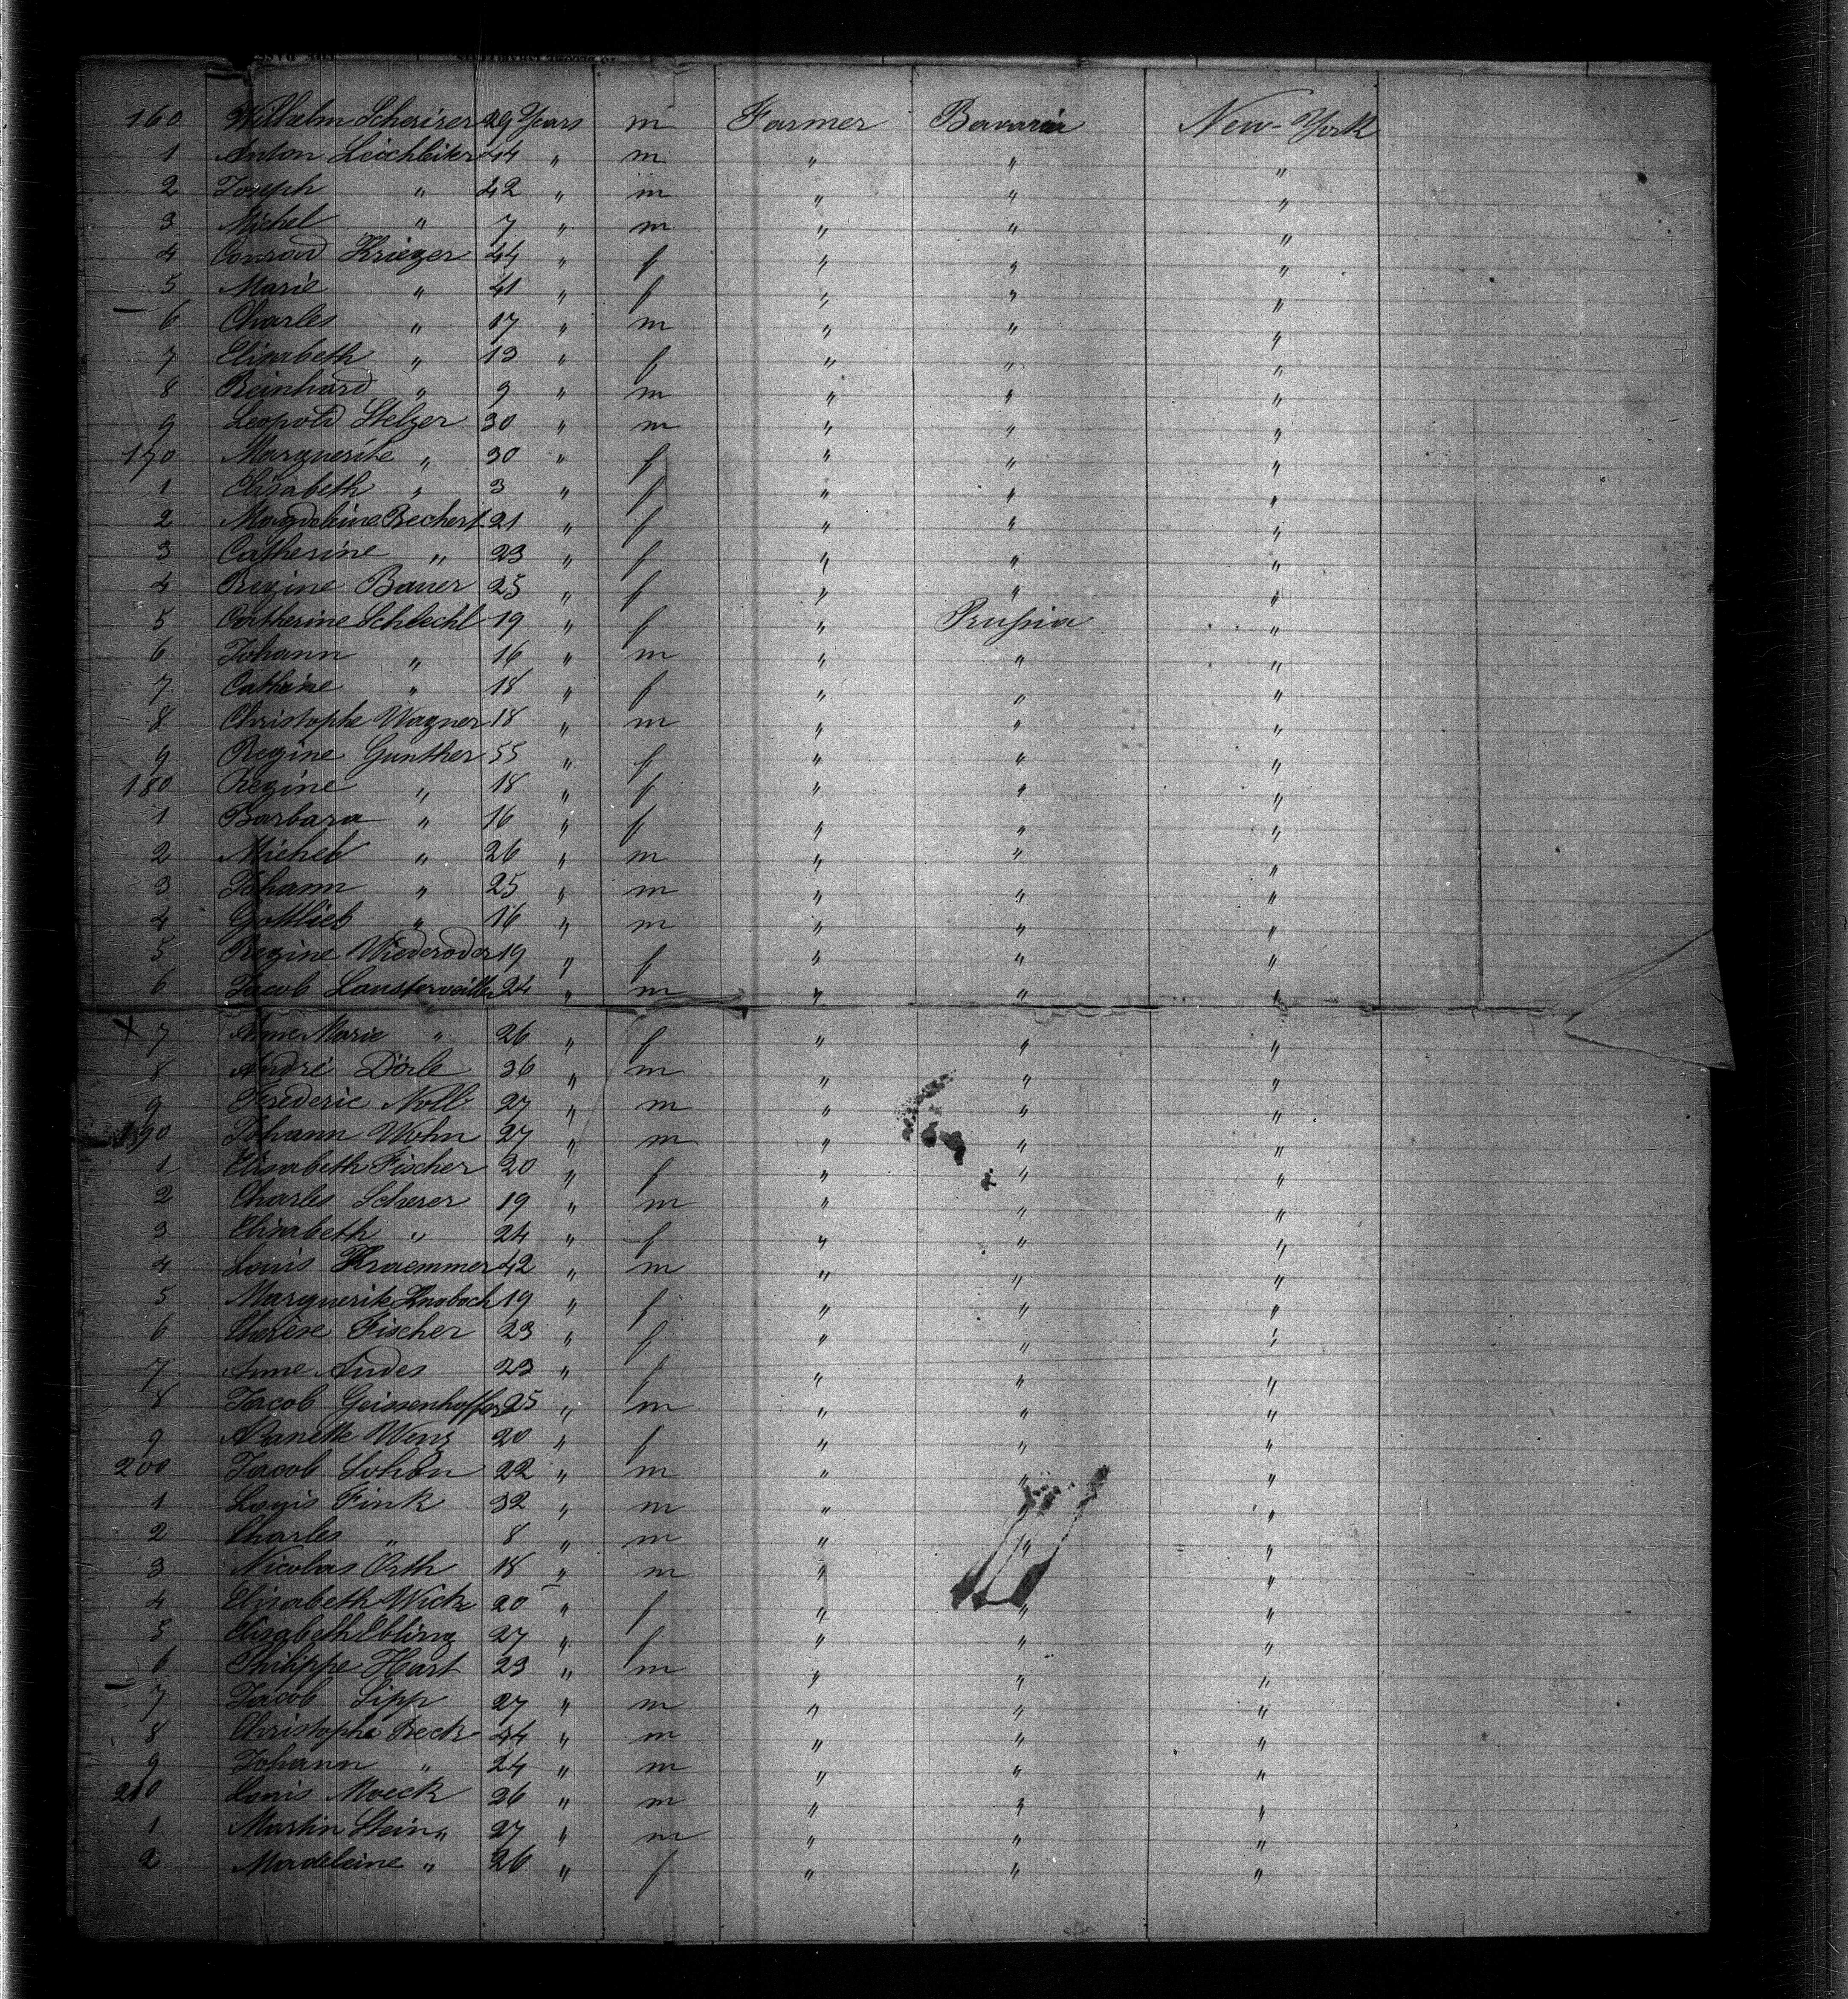 160 Wilhelm Scheirer 29 Years m Farmer Bavaria New-York
1 Anton Leichleiter 44 " m " " "
2 Joseph " 42 " m " " "
3 Michel " 7 " m " " "
4 Conrad Krieger 44 " f " " "
5 Marie " 41 " f " " "
6 Charles " 17 " m " " "
7 Elisabeth " 13 " f " " "
8 Reinhard " 9 " m " " "
9 Leopold Stelzer 30 " m " " "
170 Marguerite " 30 " f " " "
1 Elisabeth " 3 " f " " "
2 Magdeleine Bechert 21 " f " " "
3 Catherine " 23 " f " " "
4 Regine Bauer 25 " f " " "
5 Catherine Schlechl 19 " f " Prussia "
6 Johann " 16 " m " " "
7 Cathrine " 18 " f " " "
8 Christophe Wagner 18 " m " " "
9 Regine Gunther 55 " f " " "
180 Regine " 18 " f " " "
1 Barbara " 16 " f " " "
2 Michel " 26 " m " " "
3 Johann " 25 " m " " "
4 Gottlieb " 16 " m " " "
5 Regine Wiederoder 19 " f " " "
6 Jacob 24 " m " " "
X 7 Anne Marie " 26 " f " " "
8 André Dörle 36 " m " " "
9 Frederic Noll 27 " m " " "
190 Johann Wohn 27 " m " " "
1 Elisabeth Fischer 20 " f " " "
2 Charles Scherer 19 " m " " "
3 Elisabeth " 24 " f " " "
4 Louis Kraemmer 42 " m " " "
5 Marguerite Knoboch 19 " f " " "
6 Therèse Fischer 23 " f " " "
7 Anne Andes 23 " f " " "
8 Jacob Geissenhoffer 25 " m " " "
9 Nanette Wenz 20 " f " " "
200 Jacob Sohon 22 " m " " "
1 Louis Fink 32 " m " " "
2 Charles " 8 " m " " "
3 Nicolas Orth 18 " m " " "
4 Elisabeth Wick 20 " f " " "
5 Elisabeth Ebling 27 " f " " "
6 Philippe Hart 23 " m " " "
7 Jacob Sipp 27 " m " " "
8 Christophe Beck 44 " m " " "
9 Johann " 24 " m " " "
210 Louis Moeck 26 " m " " "
1 Martin Stein " 27 " m " " "
2 Madeleine " 26 " f " " "